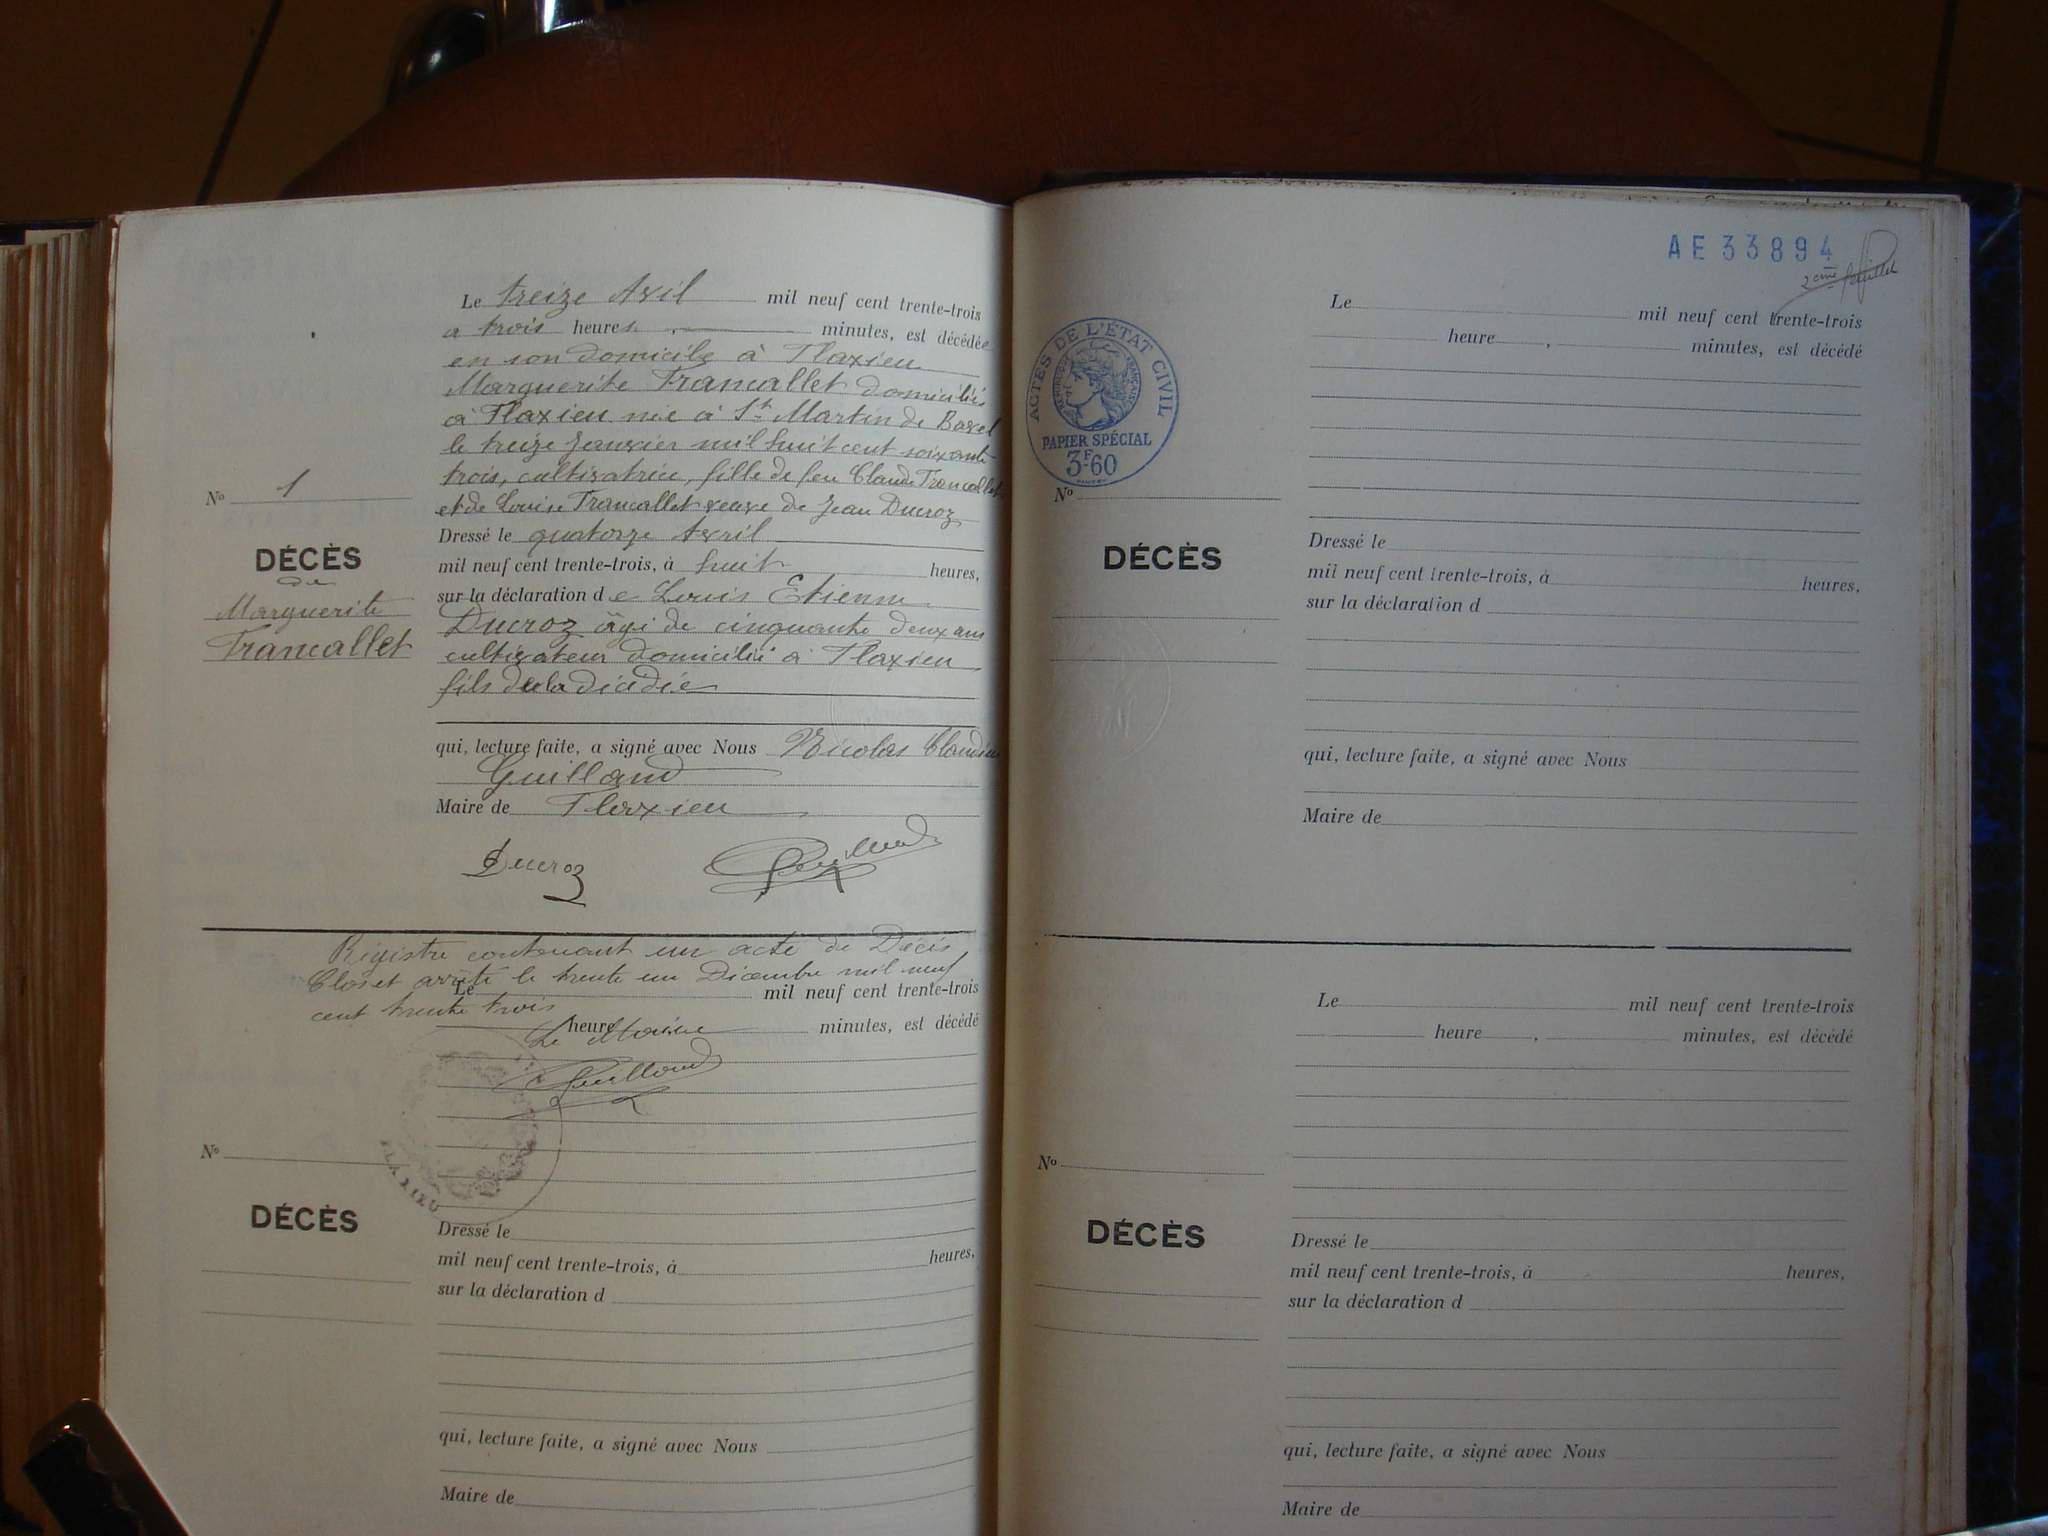 Le treize Avil mil neuf cent trente-trois
a trois heures minutes, est décédée
en son domicile à Plaxieu
Marguerite Francallet domiciliée
à Plaxieu née à St Martin de Bavel
le treize Janvier mil huit cent soixante
trois, cultivatrice, fille de feu Claude Francallet
et de Louise Francallet veuve de Jean Ducroz
Nº 1
DÉCÈS
de
Marguerite
Francallet
Dressé le quatorze Avril
mil neuf cent trente-trois, à huit heures,
sur la déclaration de Louis Etienne
Ducroz âgé de cinquante deux ans
cultivateur domicilié à Plaxieu
fils de la décédée
qui, lecture faite, a signé avec Nous Nicolas Claudius
Guilland
Maire de Flaxieu
Ducroz Guilland
Régistre contenant un acte de Décès
Clos et arrêté le trente un Décembre mil neuf
cent trente trois
Le mil neuf cent trente-trois
heure minutes, est décédé
Le Maire
Guilland
FLAXIEU
Nº
DÉCÈS
Dressé le
mil neuf cent trente-trois, à heures,
sur la déclaration d
qui, lecture faite, a signé avec Nous
Maire de
AE 33894
2ème feuillet
Le mil neuf cent trente-trois
heure , minutes, est décédé
ACTES DE L'ÉTAT CIVIL
RÉPUBLIQUE FRANÇAISE
PAPIER SPÉCIAL
3F60
Nº
DÉCÈS
Dressé le
mil neuf cent trente-trois, à heures,
sur la déclaration d
qui, lecture faite, a signé avec Nous
Maire de
Le mil neuf cent trente-trois
heure , minutes, est décédé
Nº
DÉCÈS
Dressé le
mil neuf cent trente-trois, à heures,
sur la déclaration d
qui, lecture faite, a signé avec Nous
Maire de